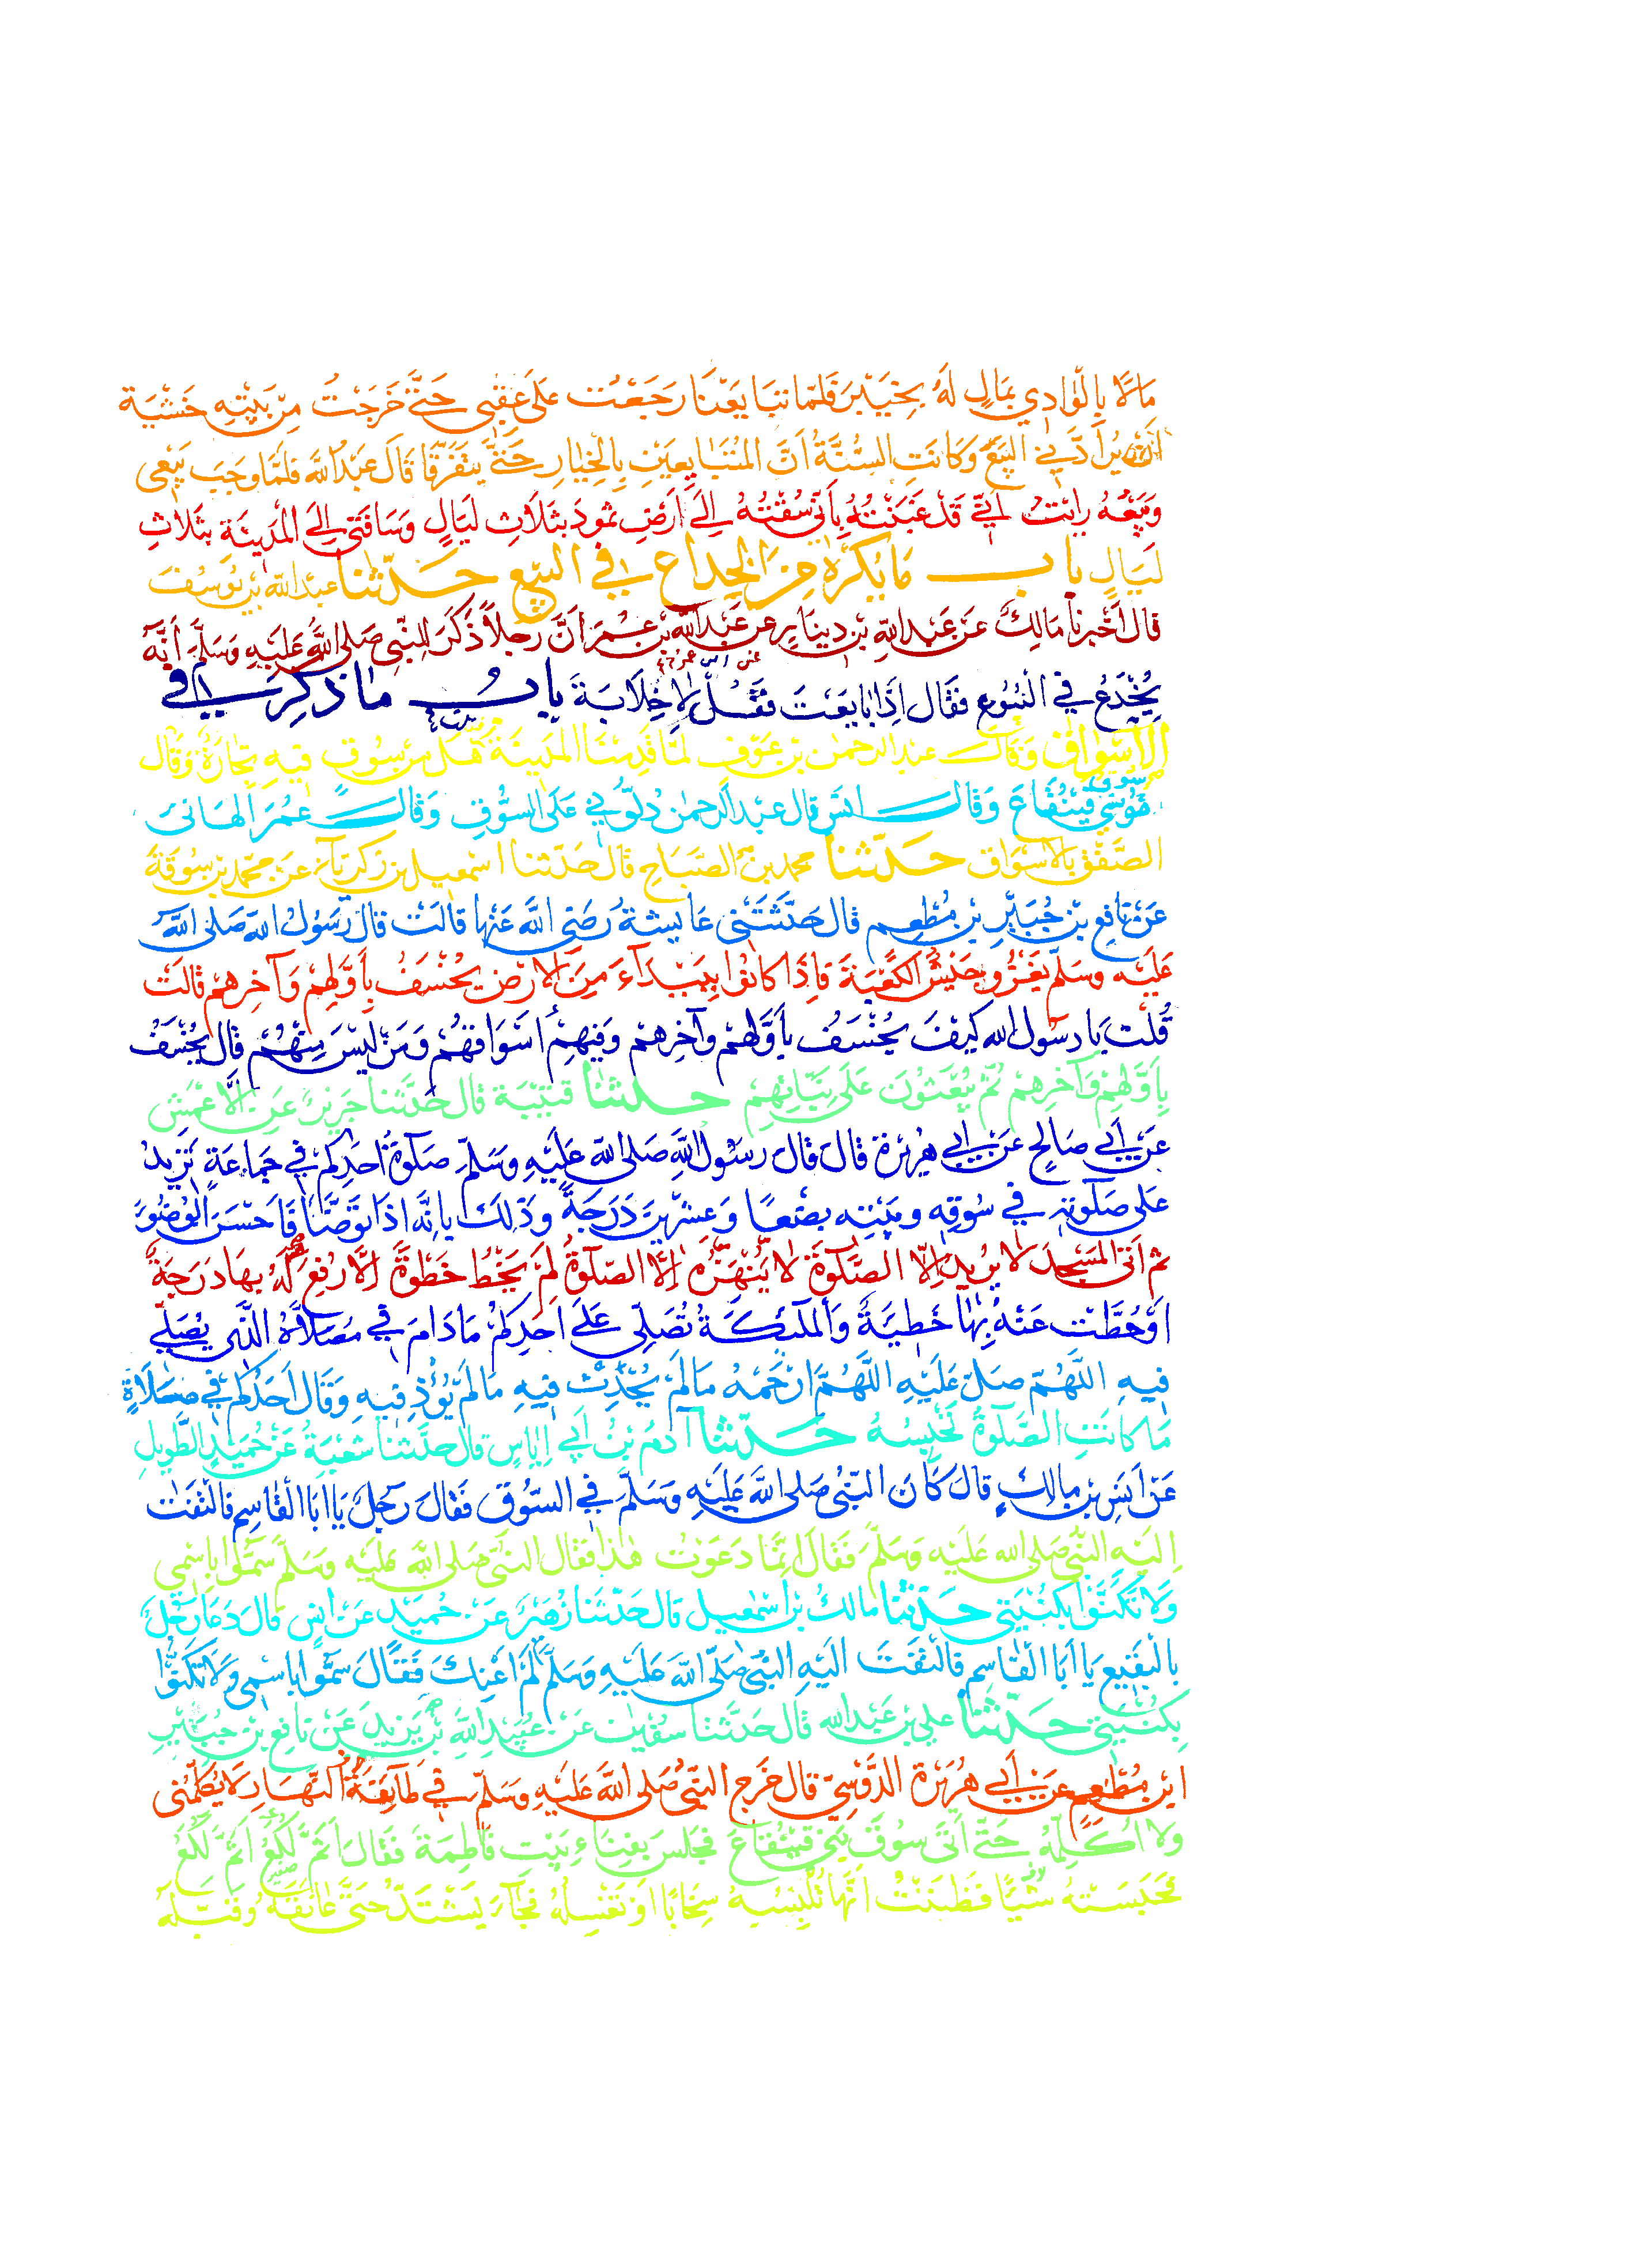 مَالًا بِالْوَادِي بِمَالٍ لَهُ بِخَيْبَرَ فَلَمَّا تَبَايَعْنَا رَجَعْتُ عَلَى عَقِبِي حَتَّى خَرَجْتُ مِنْ بَيْتِهِ خَشْيَةَ
اَنْ يُرَادَّنِي الْبَيْعَ وَكَانَتِ السُّنَّةُ اَنَّ الْمُتَبَايِعَيْنِ بِالْخِيَارِ حَتَّى يَتَفَرَّقَا قَالَ عَبْدُ اللَّهِ فَلَمَّا وَجَبَ بَيْعِى
وَبَيْعُهُ رَايْتُ اَنِّي قَدْ غَبَنْتُهُ بِاَنِّي سُقْتُهُ اِلَى اَرْضِ ثَمُودَ بِثَلَاثِ لَيَالٍ وَسَاقَنِي اِلَى الْمَدِينَةِ بِثَلَاثِ
لَيَالٍ بَابُ مَا يُكْرَهُ مِنَ الْخِدَاعِ فِي الْبَيْعِ حَدَّثَنَا عَبْدُ اللهِ بْنُ يُوسُفَ
قَالَ اَخْبَرَنَا مَالِكٌ عَنْ عَبْدِ اللَّهِ بْنِ دِينَارٍ عَنْ عَبْدِ اللَّهِ بْنِ عُمَرَ اَنَّ رَجُلاً ذَكَرَ لِلنَّبِيِّ صَلَى اللَّهُ عَلَيْهِ وَسَلَّمَ اَنَّهُ
يُخْدَعُ فِي الْبُيُوعِ فَقَالَ اِذَا بَايَعْتَ فَقُلْ لَا خِلَابَةَ بَابُ مَا ذُكِرَ فِي
الْاَسْوَاقِ وَقَالَ عَبْدُ الرَّحْمٰنِ بْنُ عَوْفٍ لَمَّا قَدِمْنَا الْمَدِينَةَ هَلْ مِنْ سُوقٍ فِيهِ تِجَارَةٌ وَقَالَ
سُوقُ قَيْنُقَاعَ وَقَالَ اَنَسٌ قَالَ عَبْدُ الرَّحْمٰنِ دُلُّونِي عَلَى السُّوقِ وَقَالَ عُمَرُ اَلْهَانِي
الصَّفْقُ بِالْاَسْوَاقِ حَدَّثَنَا مُحَمَّدُ بْنُ الصَّبَّاحِ قَالَ حَدَّثَنَا اِسْمٰعِيلُ بْنُ زَكَرِيَّآءَ عَنْ مُحَمَّدِ بْنِ سُوقَةَ
عَنْ نَافِعِ بْنِ جُبَيْرِ بْنِ مُطْعِمٍ قَالَ حَدَّثَتْنِي عَايِشَةُ رَضِيَ اللَّهُ عَنْهَا قَالَتْ قَالَ رَسُولُ اللَّهِ صَلَى اللَّهُ
عَلَيْهِ وَسَلَّمَ يَغْزُو جَيْشٌ الْكَعْبَةَ فَاِذَا كَانُوا بِبَيْدَآءَ مِنَ الْاَرْضِ يُخْسَفُ بِاَوَّلِهِمْ وَآخِرِهِمْ قَالَتْ
قُلْتُ يَا رَسُولَ اللهِ كَيْفَ يُخْسَفُ بِاَوَّلِهِمْ وَآخِرِهِمْ وَفِيهِمْ اَسْوَاقُهُمْ وَمَنْ لَيْسَ مِنْهُمْ قَالَ يُخْسَفُ
بِاَوَّلِهِمْ وَآخِرِهِمْ ثُمَّ يُبْعَثُونَ عَلَى نِيَّاتِهِمْ حَدَّثَنَا قُتَيْبَةُ قَالَ حَدَّثَنَا جَرِيرٌ عَنِ الْاَعْمَشِ
عَنْ اَبِي صَالِحٍ عَنْ اَبِي هُرَيْرَةَ قَالَ قَالَ رَسُولُ اللَّهِ صَلَى اللَّهُ عَلَيْهِ وَسَلَّمَ صَلَوةُ اَحَدِكُمْ فِي جَمَاعَةٍ تَزِيدُ
عَلَى صَلَوتِهِ فِي سُوقِهِ وَبَيْتِهِ بِضْعًا وَعِشْرِينَ دَرَجَةً وَذَلِكَ بِاَنَّهُ اِذَا تَوَضَّاَ فَاَحْسَنَ الْوُضُوءَ
ثُمَّ اَتَى الْمَسْجِدَ لَا يُرِيدُ اِلَّا الصَّلَوةَ لَا يَنْهَزُهُ اِلَّا الصَّلَوةُ لَمْ يَخْطُ خَطْوَةً اِلَّا رُفِعَ لَهُ بِهَا دَرَجَةً
اَوْ حُطَّتْ عَنْهُ بِهَا خَطِيَةٌ وَالْمَلٰئِكَةُ تُصَلِّي عَلَى اَحَدِكُمْ مَادَامَ فِي مُصَلَّاهُ الَّذِي يُصَلِّي
فِيهِ اللَّهُمَّ صَلِّ عَلَيْهِ اللَّهُمَّ ارْحَمْهُ مَا لَمْ يُحْدِثْ فِيهِ مَا لَمْ يُؤْذِ فِيهِ وَقَالَ اَحَدُكُمْ فِي صَلَاةٍ
مَا كَانَتِ الصَّلَوةُ تَحْبِسُهُ حَدَّثَنَا آدَمُ بْنُ اَبِي اِيَاسٍ قَالَ حَدَّثَنَا شُعْبَةُ عَنْ حُمَيْدٍ الطَّوِيلِ
عَنْ اَنَسِ بْنِ مَالِكٍ قَالَ كَانَ النَّبِيُّ صَلَى اللَّهُ عَلَيْهِ وَسَلَّمَ فِي السُّوقِ فَقَالَ رَجُلٌ يَا اَبَا الْقَاسِمِ فَالْتَفَتَ
اِلَيْهِ النَّبِيُّ صَلَى اللهُ عَلَيْهِ وَسَلَّمَ فَقَالَ اِنَّمَا دَعَوْتُ هٰذَا فَقَالَ النَّبِيُّ صَلَى اللَّهُ عَلَيْهِ وَسَلَّمَ سَمُّوا بِاسْمِي
وَلَا تَكَنَّوْا بِكُنْيَتِي حَدَّثَنَا مَالِكُ بْنُ اِسْمٰعِيلَ قَالَ حَدَّثَنَا زُهَيْرٌ عَنْ حُمَيْدٍ عَنْ اَنَسٍ قَالَ دَعَا رَجُلٌ
بِالْبَقِيعِ يَا اَبَا الْقَاسِمِ فَالْتَفَتَ اِلَيْهِ النَّبِيُّ صَلَّى اللَّهُ عَلَيْهِ وَسَلَّمَ لَمْ اَعْنِكَ فَقَالَ سَمُّوا بِاسْمِي وَلَا تَكَنَّوْا
بِكُنْيَتِي حَدَّثَنَا عَلِيُّ بْنُ عَبْدِ اللهِ قَالَ حَدَّثَنَا سُفْيَانُ عَنْ عُبَيْدِ اللَّهِ بْنِ يَزِيدَ عَنْ نَافِعِ بْنِ جُبَيْرِ
ابْنِ مُطْعِمٍ عَنْ اَبِي هُرَيْرَةَ الدَّوْسِيِّ قَالَ خَرَجَ النَّبِيُّ صَلَى اللَّهُ عَلَيْهِ وَسَلَّمَ فِي طَآئِفَةِ النَّهَارِ لَا يُكَلِّمُنِي
وَلَا اُكَلِّمُهُ حَتَّى اَتَى سُوقَ بَنِي قَيْنُقَاعَ فَجَلَسَ بِفِنَاءِ بَيْتِ فَاطِمَةَ فَقَالَ اَثَمَّ لُكَعُ اَثَمَّ لُكَعُ
فَحَبَسَتْهُ شَيْئًا فَظَنَنْتُ اَنَّهَا تُلْبِسُهُ سِخَابًا اَوْ تُغَسِّلُهُ فَجَآءَ يَشْتَدُّ حَتَّى عَانَقَهُ وَقَبَّلَهُ